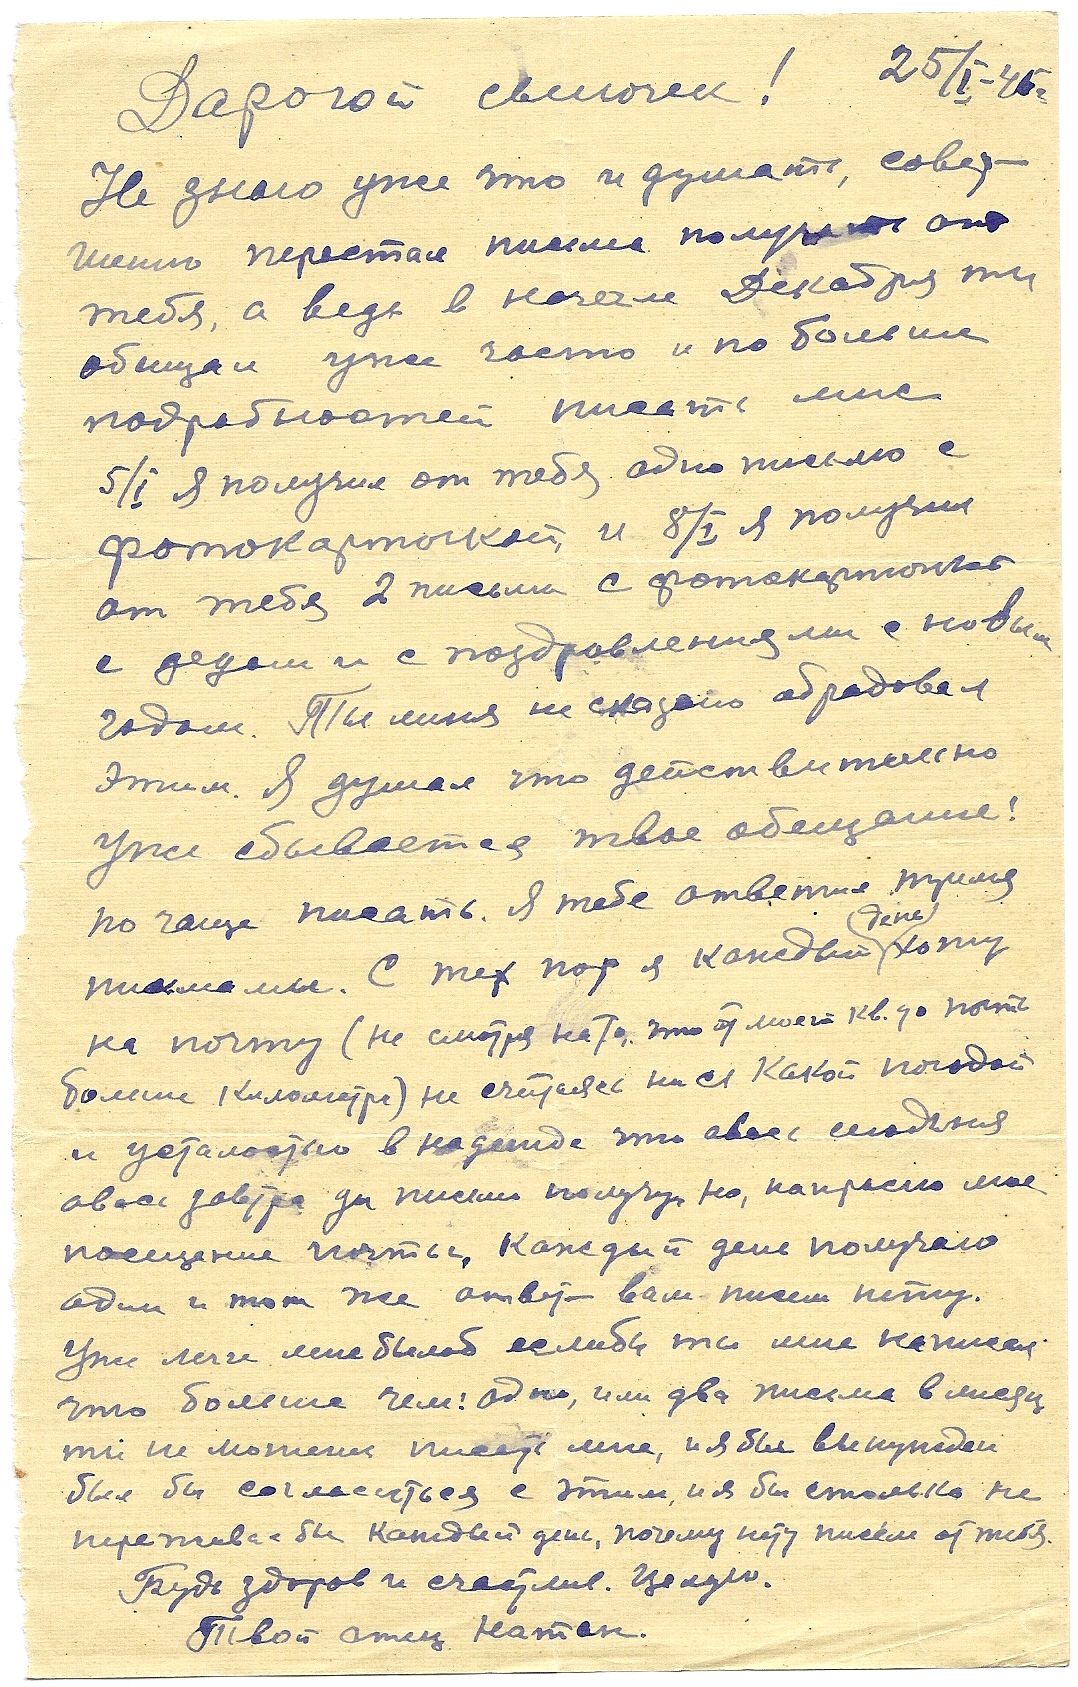 25/I-46г
Дарогой сыночек!
Не знаю уже что и думать, совер-
шенно перестал письма получать от
тебя, а ведь в начале Декабря ты
обещал уже часто и по больше
подрабностей писать мне
5/I я получил от тебя одно письмо с
фотокарточкой, и 8/I я получил
от тебя 2 письма с фотокарточкой
с дедом и с поздровлениями с новым
годом. Ты меня не сказано обрадовал
этим. Я думал что действительно
уже сбывается твое обещание!
по чаще писать. Я тебе ответил тремя
письмами. С тех пор я каждый (день) хожу
на почту (не смотря на то, что от моей кв. до почты
больше километра) не считаясь ни с какой погодой
и усталостью в надежде что авось сегодня
авось завтра да письмо получу, но, напрасно мое
посещение почты, каждый день получаю
один и тот же ответ – вам писем нету.
Уже легче мне былоб еслибы ты мне написал
что больше чем: одно, или два письма в месяц
ты не можеш писать мне, и я бы вынужден
был бы согласиться с этим, и я бы столько не
переживал бы каждый день, почему нету писем от тебя.
Будь здоров и счастлив. Целую.
Твой отец Натан.